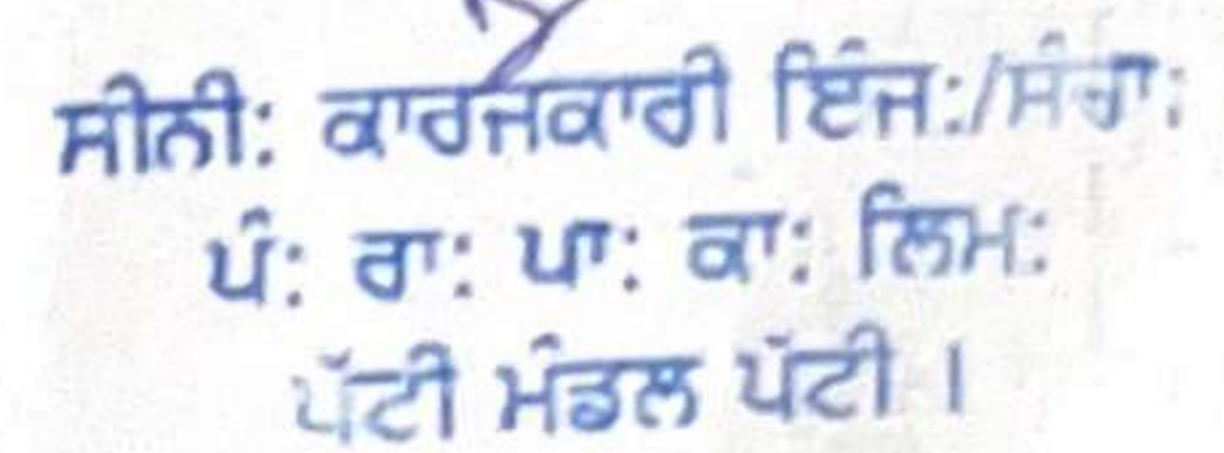 ਸੀਨੀ: ਕਾਰਜਕਾਰੀ ਇੰਜ:/ਸੰਚਾ:
ਪੰ: ਰਾ: ਪਾ: ਕਾ: ਲਿਮ:
ਪੱਟੀ ਮੰਡਲ ਪੱਟੀ ।